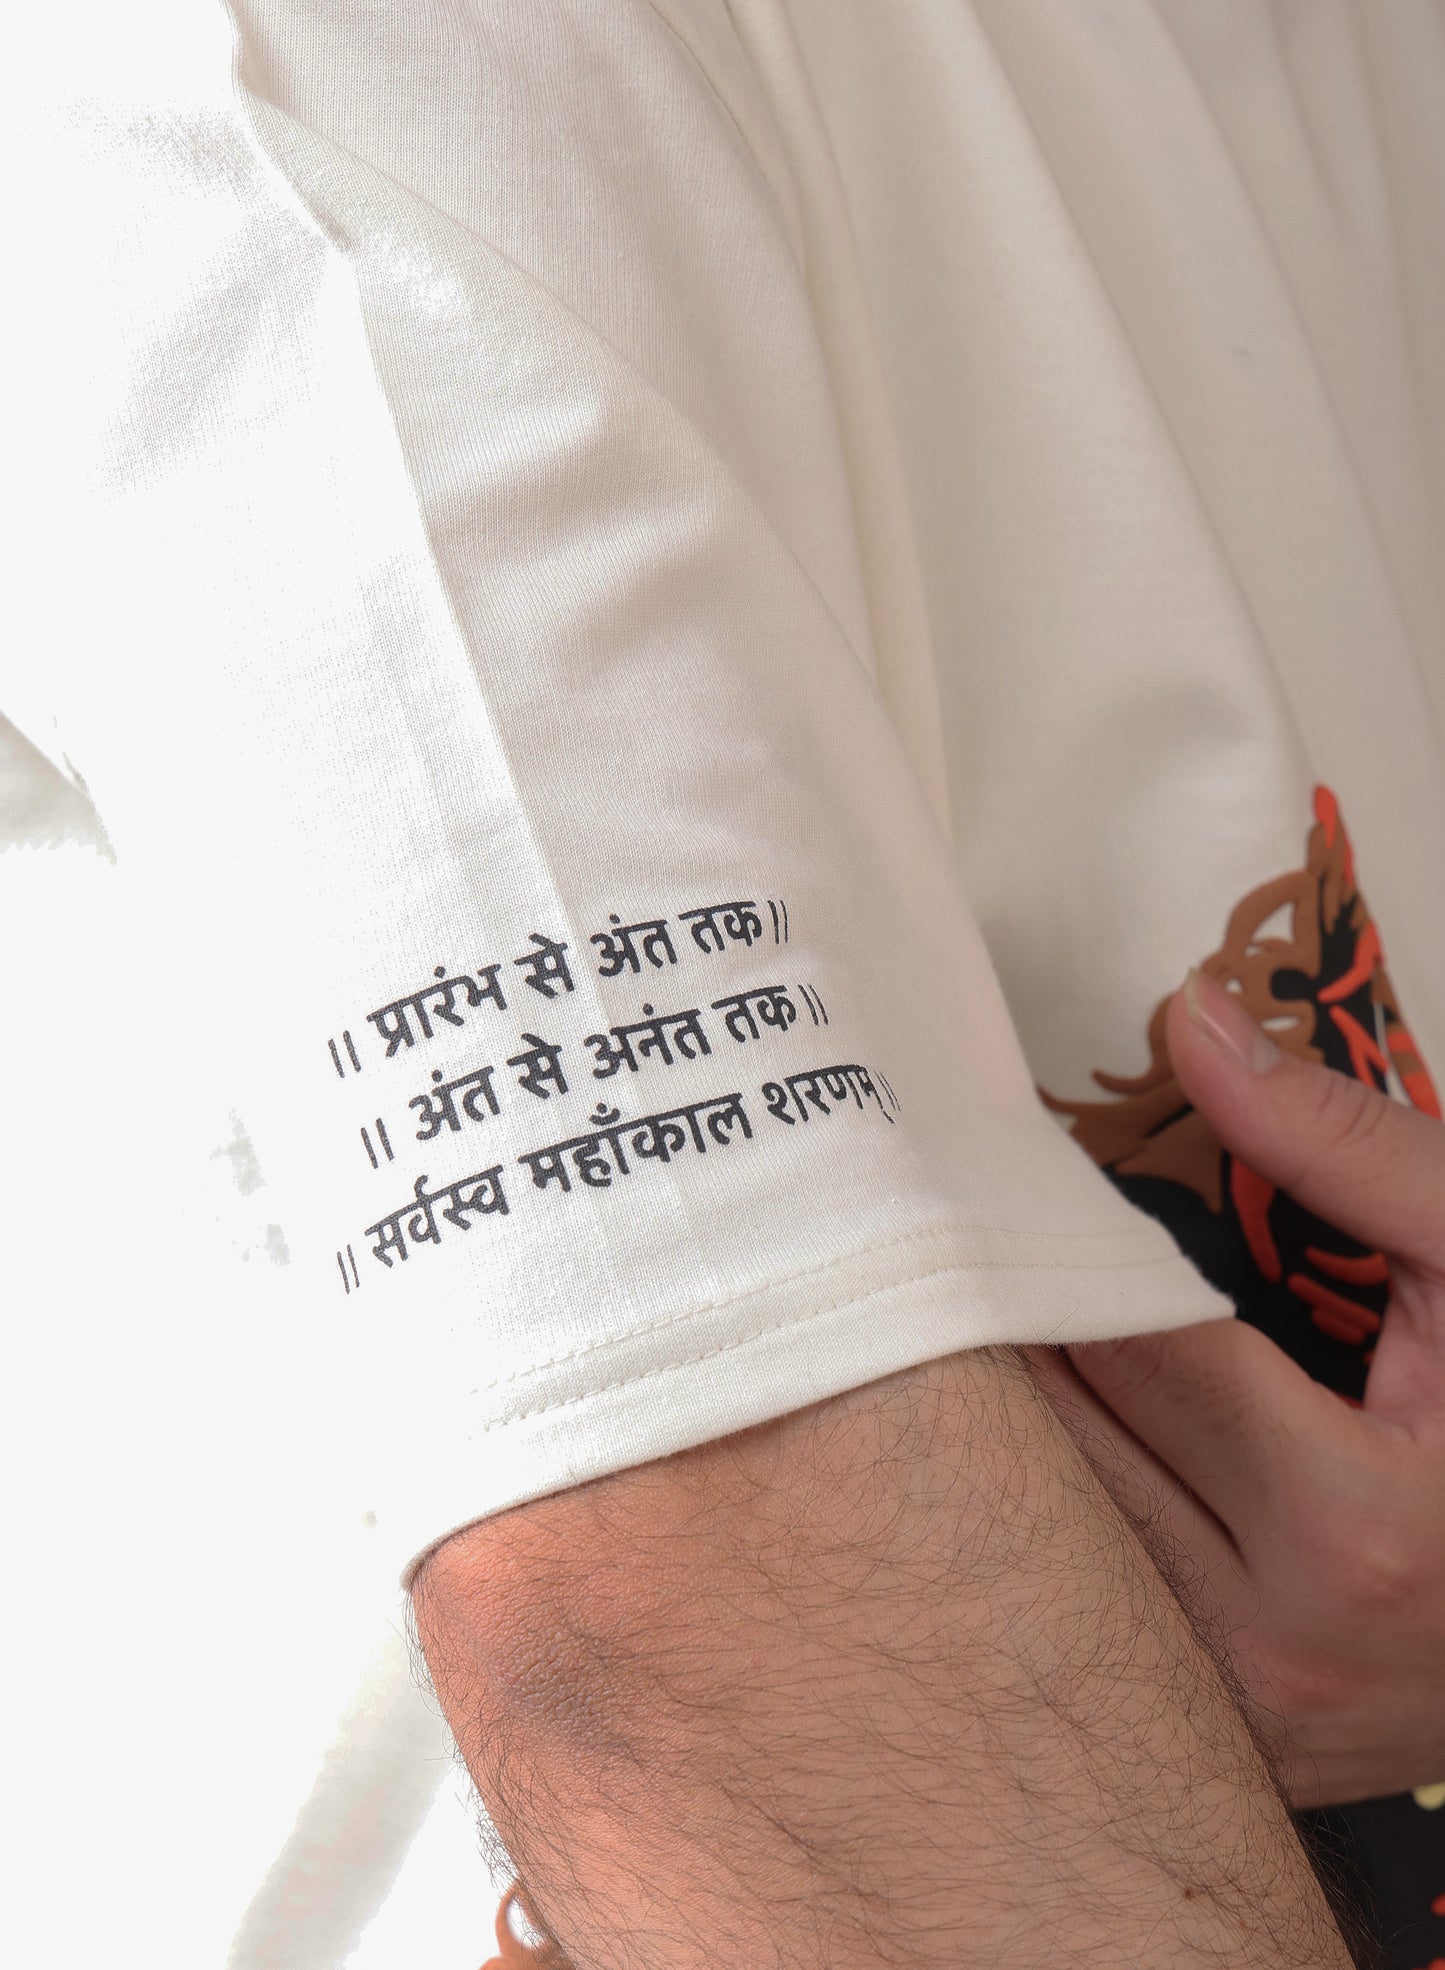 ॥ प्रारंभ से अंत तक॥
॥ अंत से अनंत तक॥
॥ सर्वस्व महाँकाल शरणम्॥